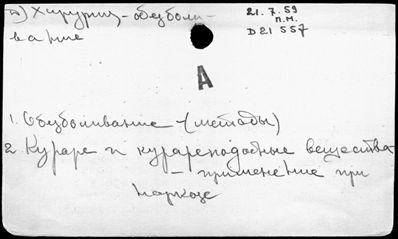 Хирургия - обезболи-
вание
21.7.59
п.м.
D21 557
A
1. Обезболивание - (методы)
2. Кураре и курареподобные вещества
- применение при
наркозе